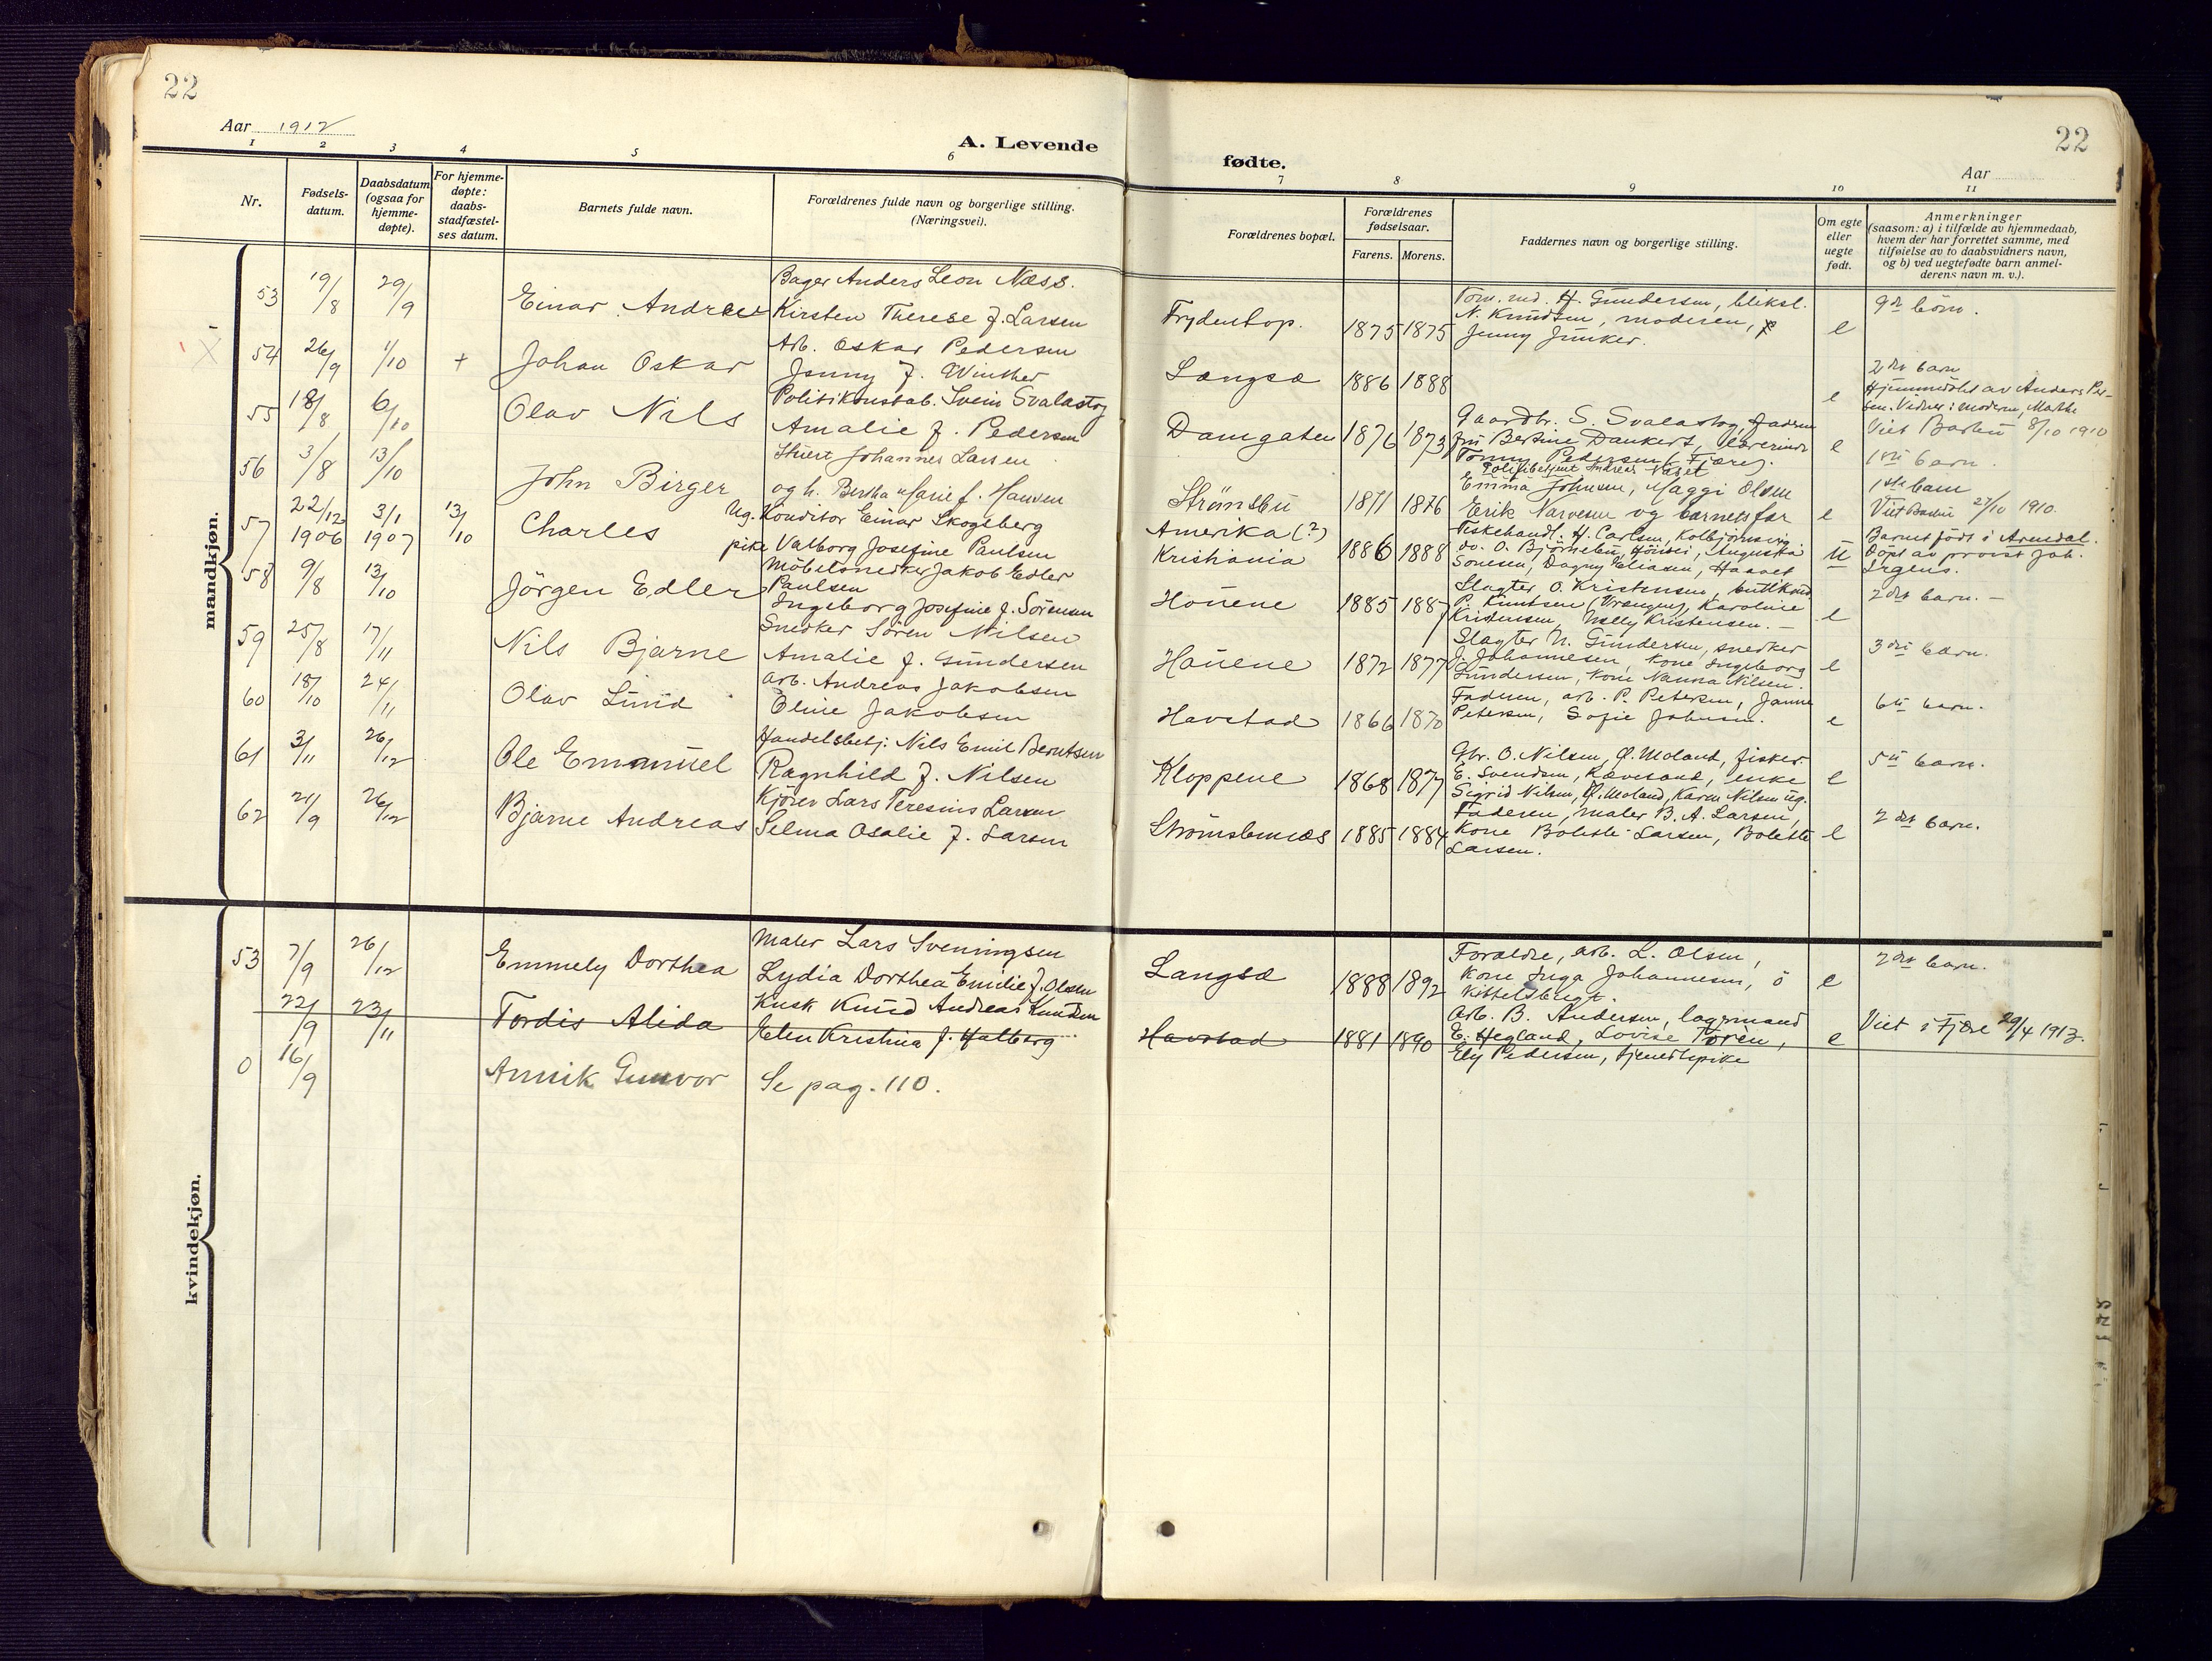 22
22
Aar 1912
A. Levende
fødte.
Aar
1 2 3 4 5 6 7 8 9 10 11
Nr.
Fødsels-
datum.
Daabsdatum
(ogsaa for
hjemme-
døpte).
For hjemme-
døpte:
daabs-
stadfæstel-
ses datum.
Barnets fulde navn.
Forældrenes fulde navn og borgerlige stilling.
(Næringsvei).
Forældrenes bopæl.
Forældrenes
fødselsaar.
Farens. Morens.
Faddernes navn og borgerlige stilling.
Om egte
eller
uegte
født.
Anmerkninger
(saasom: a) i tilfælde av hjemmedaab,
hvem der har forrettet samme, med
tilføielse av to daabsvidners navn,
og b) ved uegtefødte barn anmel-
derens navn m. v.).
mandkjøn.
53 19/8 29/9 Einar Andreas
Bager Anders Leon Næss.
Kirsten Therese f. Larsen
1875 1875
H. Gundersen, bliksl.
N. Knudsen, moderen,
Jenny Junker.
e
9de barn.
54 26/9 1/10 + Johan Oskar
Arb. Oskar Pedersen
Jenny f. Winther
Langsæ 1886 1888
e
2det barn
Hjemmedøbt av Anders Pe-
sen. Vidner: Moderen, Marthe
55 18/8 6/10 Olav Nils
Politikonstab. Svein Svalastog
Amalie f. Pedersen
Damgaten 1876 1873
Gaardbr. S. Svalastog, faderen
frk Bertine Dankert, lærerinde
Tommy Pedersen (Fjære).
e
Viet Barbu 8/10 1910
1ste barn.
56 3/8 13/10 John Birger
Stuert Johannes Larsen
og h. Bertha Marie f. Hansen
Strømsbu 1871 1876
Politibetjent Andreas
Emma Johnsen, Maggi Olsen
Erik Narvesen og barnets far
e
1ste barn
Viet Barbu 27/10 1910.
57 22/12 1906 3/1 1907 13/10 Charles
Ug. Konditor Einar Skogsberg
pike Valborg Josefine Paulsen
Amerika (?)
Kristiania
1886 1888
Fiskehandl. H. Carlsen, Kolbjørnsvig
do. O. Bjørnebu, Augusta
Sonesen, Dagny Eliasen,
u
Barnet født i Arendal.
Døpt av provst Joh.
Irgens.
58 9/8 13/10 Jörgen Edler
Møbelsnedker Jakob Edler
Paulsen
Ingeborg Josefine f. Sörensen
Houene 1885 1887
Slagter O. Kristensen,
P. Knutsen Karoline
Kristensen, Nelly Kristensen. —
e
2det barn. —
59 25/8 17/11 Nils Bjarne
Snedker Sören Nilsen
Amalie f. Gundersen
Houene 1872 1877
Slagter N. Gundersen, snedker
J. Johannesen, Kone Ingeborg
Gundersen, Kone Nanna Nilsen.
e
3die barn.
60 18/10 24/11 Olav Lund
Arb. Andreas Jakobsen
Eline Jakobsen
Havstad 1866 1870
Faderen, arb. P. Petersen, Janna
Petersen, Sofie Johnsen.
e
6te barn.
61 3/11 26/12 Ole Emanuel
Handelsbetj. Nils Emil Berntsen
Ragnhild f. Nilsen
Kloppene 1868 1877
Gbr. O. Nilsen, Ø. Moland, fisker
E. Svendsen, Rævesand, enke
Sigrid Nilsen, Ø. Moland, Karen Nilsen ug.
e
5te barn.
62 21/9 26/12 Bjarne Andreas
Kjører Lars Teresius Larsen
Selma Osalie f. Larsen
Strømsbunæs 1885 1884
Faderen, maler B. A. Larsen,
Kone Bolette Larsen, Bolette
Larsen.
e
2det barn.
kvindekjøn.
53 7/9 26/12 Emmely Dorthea
Maler Lars Sveningsen
Lydia Dorthea Emilie f. Olsen
Langsæ 1888 1892
Forældre, arb. L. Olsen,
Kone Inga Johannesen,
Kittelsbugt.
e
2det barn.
22/9 23/11 Tordis Alida
Kusk Knud Andreas Knudsen
Elen Kristina f. Halberg
Havstad 1881 1890
Arb. B. Andersen, lagermand
E. Hegland, Lovise Torèn,
Ely Pedersen, tjenestepike
e
Viet i Fjære 29/4 1913.
0 16/9 Annik Gunvor
Se pag. 110.